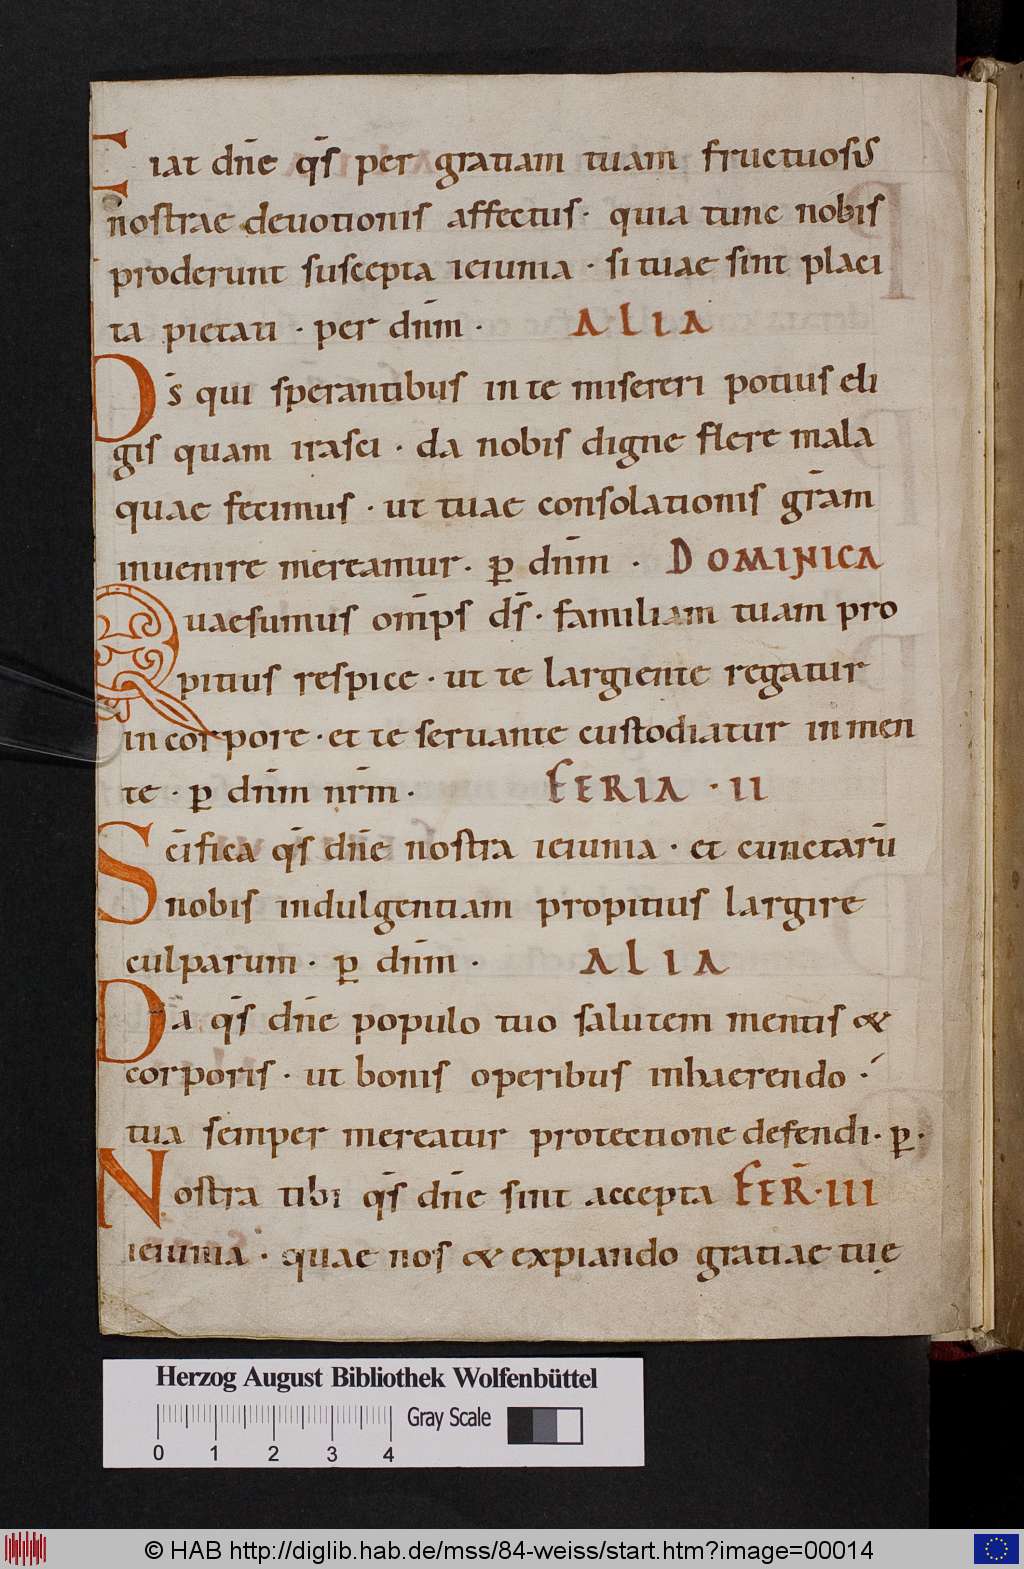 Fiat dn̄e qs̄ per gratiam tuam fructuosis
nostrae deuotionis affectus· quia tunc nobis
proderunt suscepta ieiunia · si tuae sint placi
ta pietati · per dnm̄ · ALIA
Ds̄ qui sperantibus in te misereri potius eli
gis quam irasci · da nobis digne flere mala
quae fecimus · ut tuae consolationis grām
inuenire mereamur. p̱ dnm̄ · DOMINICA
Quaesumus om̄ps ds̄· familiam tuam pro
pitius respice · ut te largiente regatur
in corpore · et te seruante custodiatur in men
te · p̱ dnm̄ nrm̄ · FERIA · II
Sc̄ifica qs̄ dn̄e nostra ieiunia · et cunctarū
nobis indulgentiam propitius largire
culparum · p̱ dnm̄ · ALIA
Da qs̄ dn̄e populo tuo salutem mentis &
corporis · ut bonis operibus inhaerendo ·
tua semper mereatur protectione defendi· p̱·
Nostra tibi qs̄ dn̄e sint accepta FER̄·III
ieiunia · quae nos & expiando gratiae tuę
Herzog August Bibliothek Wolfenbüttel
0 1 2 3 4 Gray Scale
© HAB http://diglib.hab.de/mss/84-weiss/start.htm?image=00014